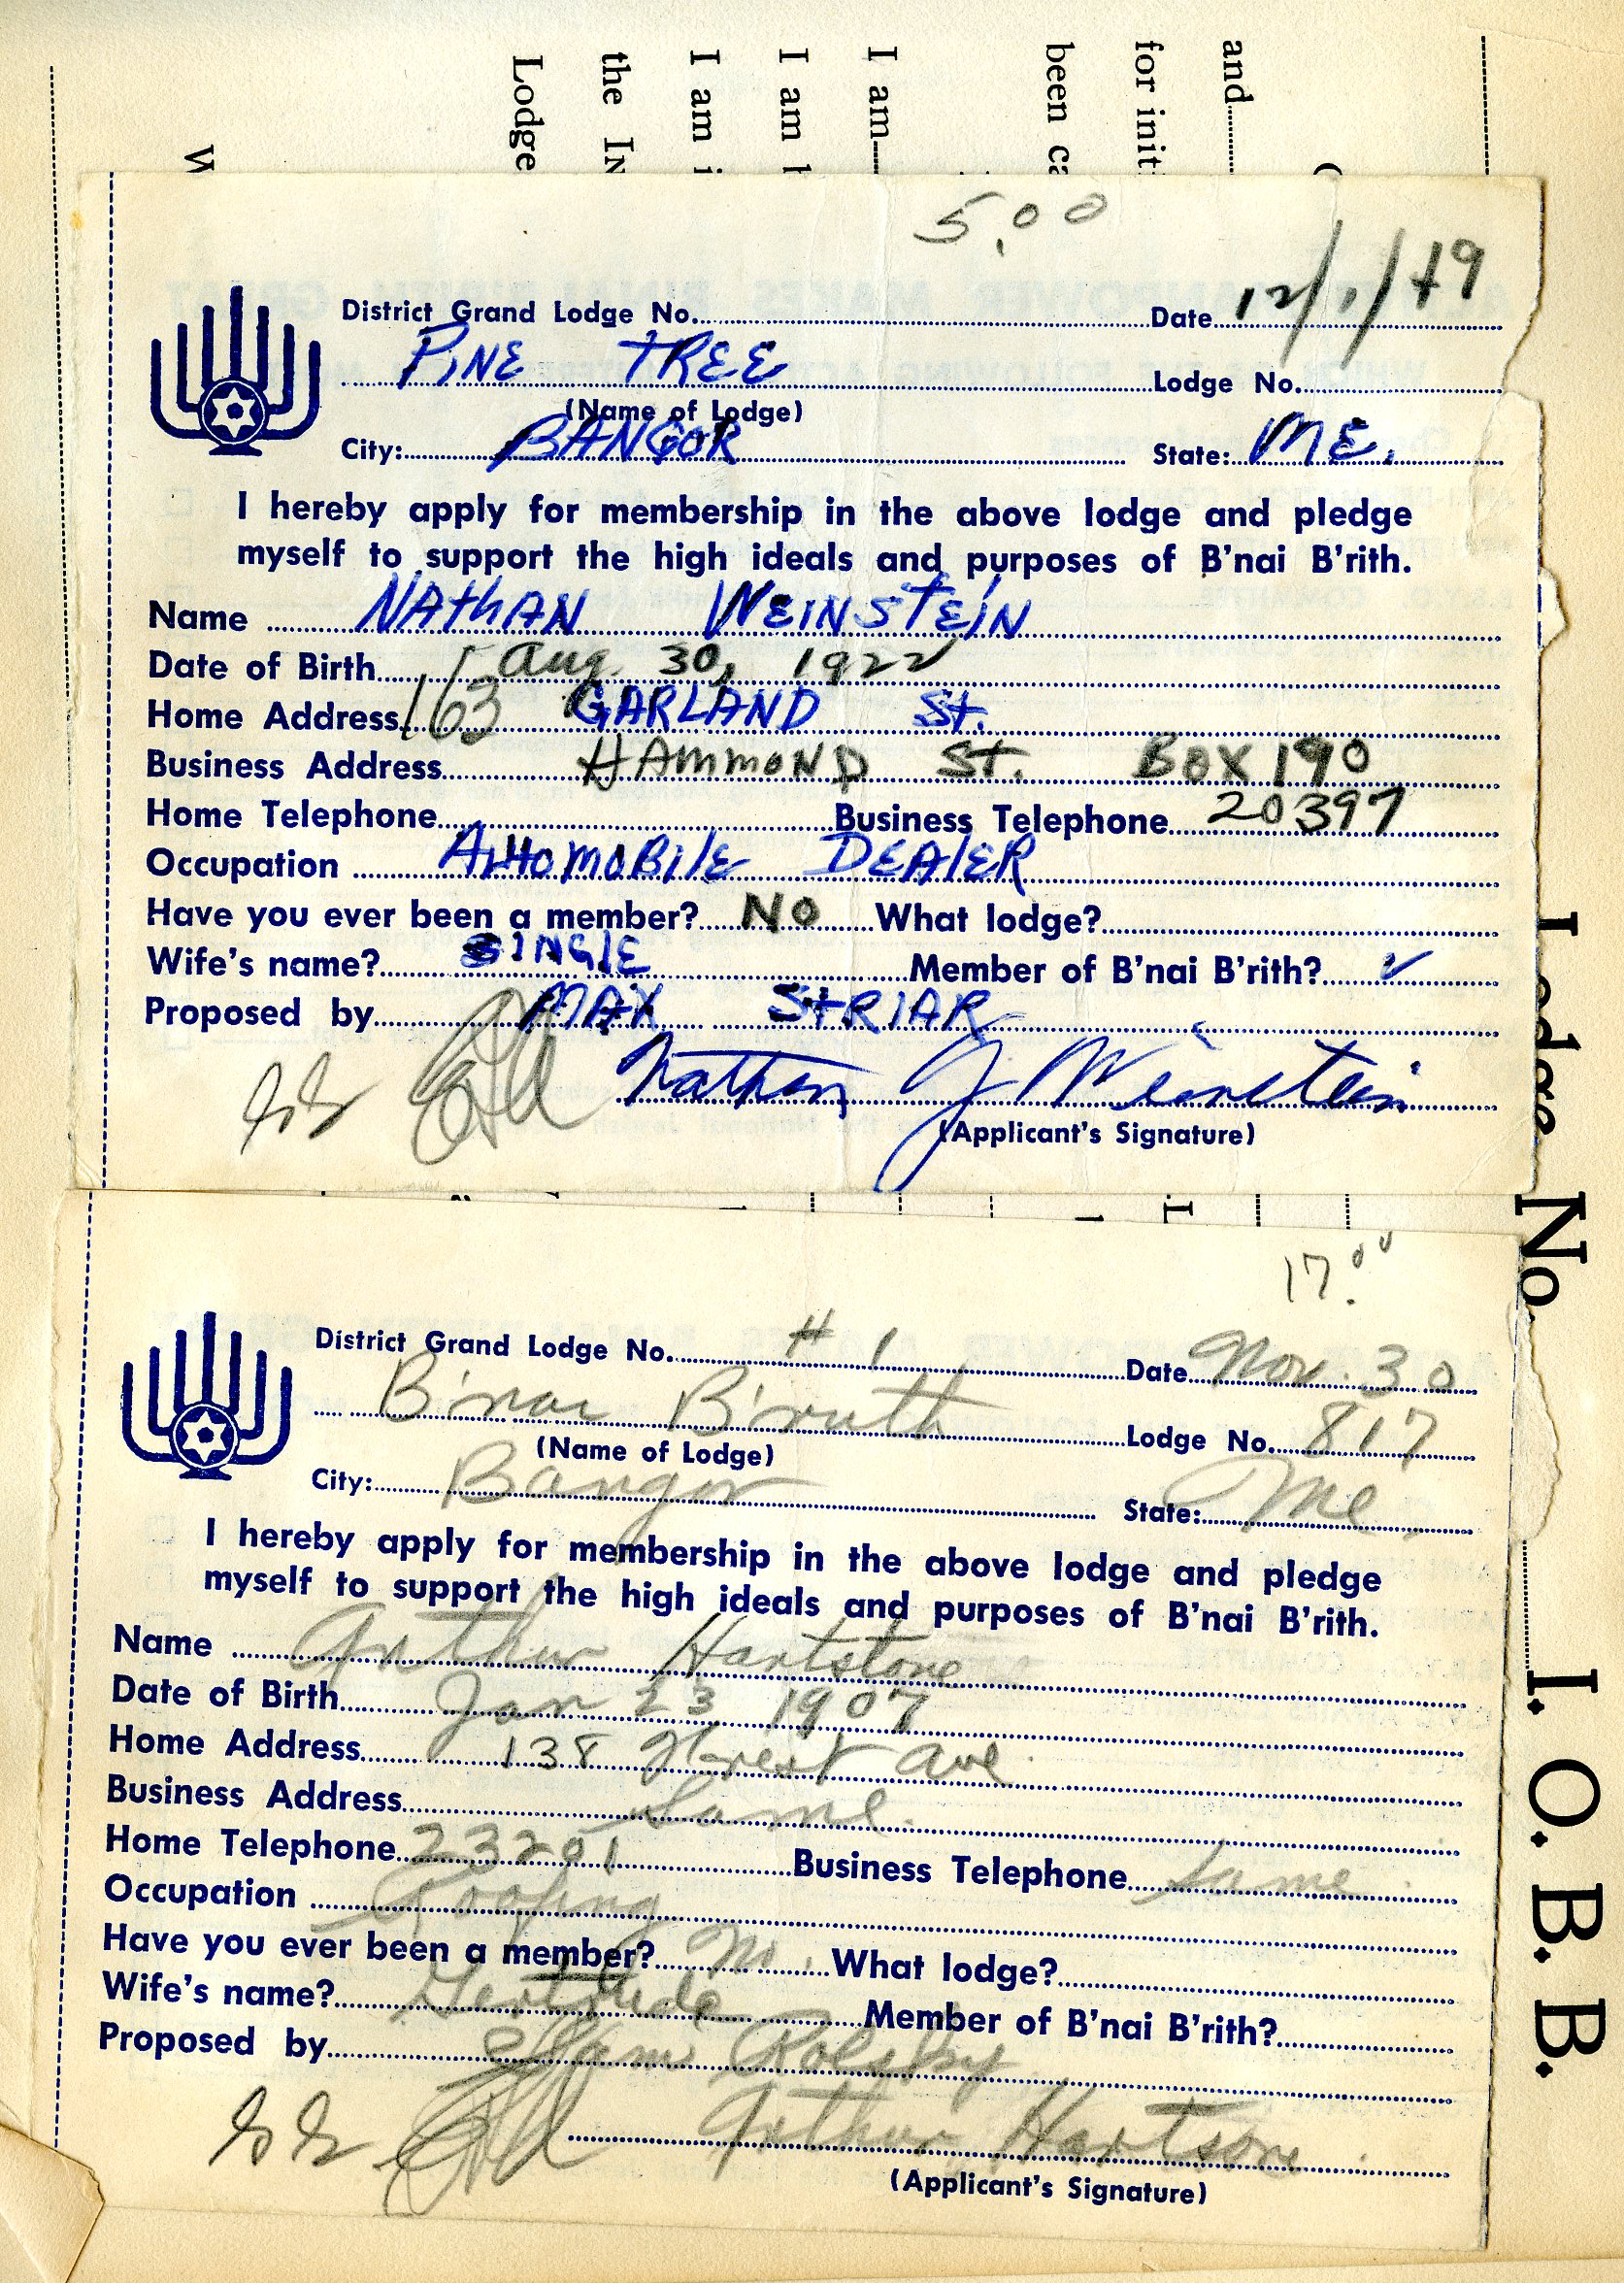 and
for init
been ca
I am
I am l
I am i
the In
Lodge
W
5.00
District Grand Lodge No. Date 12/1/49
PINE TREE Lodge No.
(Name of Lodge)
City: BANGOR State: ME.
I hereby apply for membership in the above lodge and pledge
myself to support the high ideals and purposes of B'nai B'rith.
Name NAthAN WEINSTEIN
Date of Birth Aug. 30, 1922
Home Address 163 GARLAND St.
Business Address HAmmoND St. Box 190
Home Telephone Business Telephone 20397
Occupation AutomoBilE DEAlER
Have you ever been a member? No What lodge?
Wife's name? SINGlE Member of B'nai B'rith? ✓
Proposed by MAX StRIAR
Nathan J Weinstein
(Applicant's Signature)
Lodge No.
I. O. B. B.
17.00
District Grand Lodge No. # 1 Date Nov. 30
B'nai B'rith Lodge No. 817
(Name of Lodge)
City: Bangor State: Me.
I hereby apply for membership in the above lodge and pledge
myself to support the high ideals and purposes of B'nai B'rith.
Name Arthur Hartstone
Date of Birth Jan 23 1907
Home Address 138 Forest Ave.
Business Address Same.
Home Telephone 23201 Business Telephone Same.
Occupation Roofing
Have you ever been a member? No. What lodge?
Wife's name? Gertrude Member of B'nai B'rith?
Proposed by Sam Rolsky
Arthur Hartstone
(Applicant's Signature)